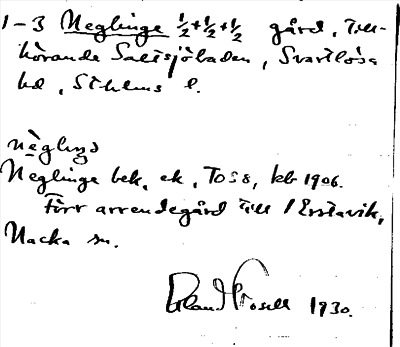 1-3 Neglinge ½+½+½ gård, till-
hörande Saltsjöbaden, Svartlösa
hd, Sthlms l.
nèglıŋə
Neglinge bek. ek. Toss, kb 1906.
Förr arrendegård till Erstavik,
Nacka sn.
1930.